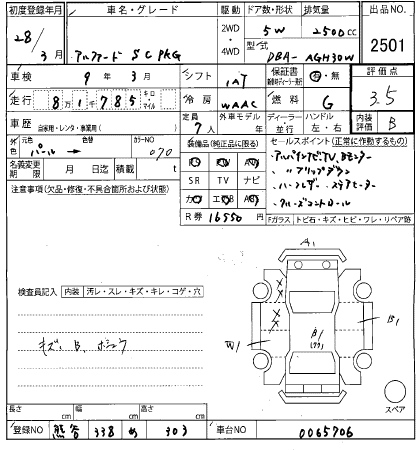 初度登録年月 車名・グレード 駆動 ドア数・形状 排気量 出品NO.
28/3月 アルファード SC PKG 2WD・4WD 5W 2500cc 2501
型式 DBA-AGH30W
車検 9年3月 シフト IAT 保証書 有・無 評価点
走行 8万1785キロ マイル 冷房 WAAC 燃料 G 3.5
車歴 自家用・レンタ・事業用( ) 定員 7人 外車モデル 年 ディーラー 並行 ハンドル 左・右 内装評価 B
外色 元色 パール 色替 カラーNO 070
装備品(純正品に限る) セールスポイント(正常に作動するもの)
名義変更期限 月 日迄 積載 t
アルパインナビTV、Bモニター
〃 フリップダウン
ハーフレザー・ステアヒーター
クルーズコントロール
注意事項(欠品・修復・不具合箇所および状態)
SR TV ナビ
R券 16550円
Fガラス トビ石・キズ・ヒビ・ワレ・リペア跡
検査員記入 内装 汚レ・スレ・キズ・キレ・コゲ・穴
キズ、B、
A1
W1
B1
スペア
長さ cm 幅 cm 高さ cm
登録NO 338 め 303 車台NO 0065706